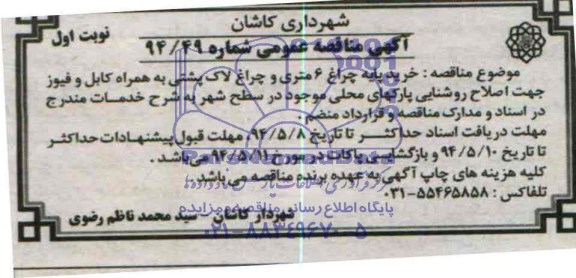 شهرداری کاشان
نوبت اول
آگهی مناقصه عمومی شماره ۹۴/۴۹
موضوع مناقصه : خرید پایه چراغ ۶ متری و چراغ لاک پشتی به همراه کابل و فیوز
جهت اصلاح روشنایی پارکهای محلی موجود در سطح شهر به شرح خدمات مندرج
در اسناد و مدارک مناقصه و قرارداد منضم .
مهلت دریافت اسناد حداکثر تا تاریخ ۹۴/۵/۸، مهلت قبول پیشنهادات حداکثر
تا تاریخ ۹۴/۵/۱۰ و بازگشایی پاکات در مورخ ۹۴/۵/۱۱ می باشد .
کلیه هزینه های چاپ آگهی به عهده برنده مناقصه می باشد .
تلفاکس : ۵۵۴۶۵۸۵۸-۰۳۱
پایگاه اطلاع رسانی مناقصه و مزایده
شهردار کاشان سید محمد ناظم رضوی
۰۲۱-۸۸۳۴۹۶۷۰-۵